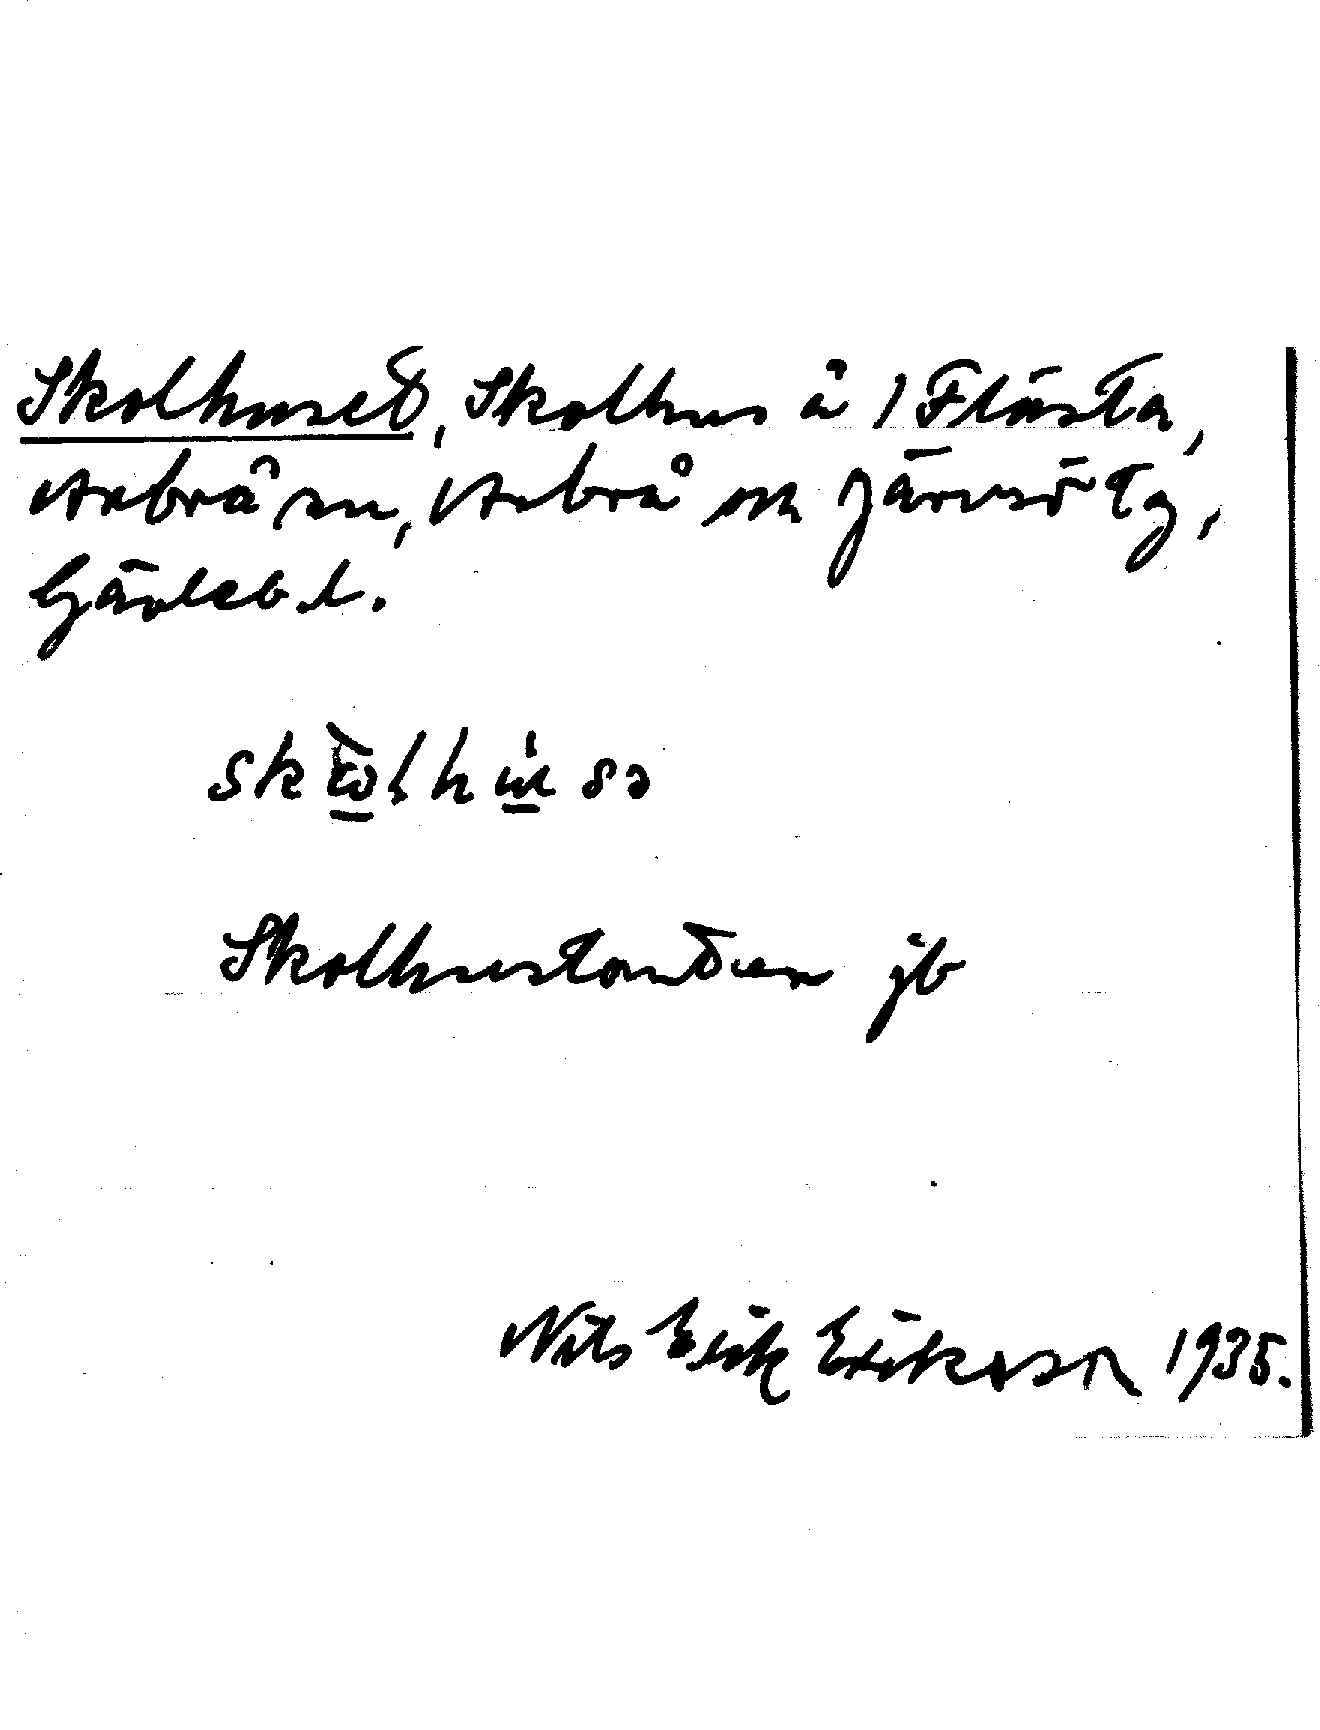 Skolhuset, Skolhus å 1 Flästa,
Arbrå sn, Arbrå och Järvsö tg,
Gävleb. l.
Skolhustomten jb
Nils Erik Eriksson 1935.